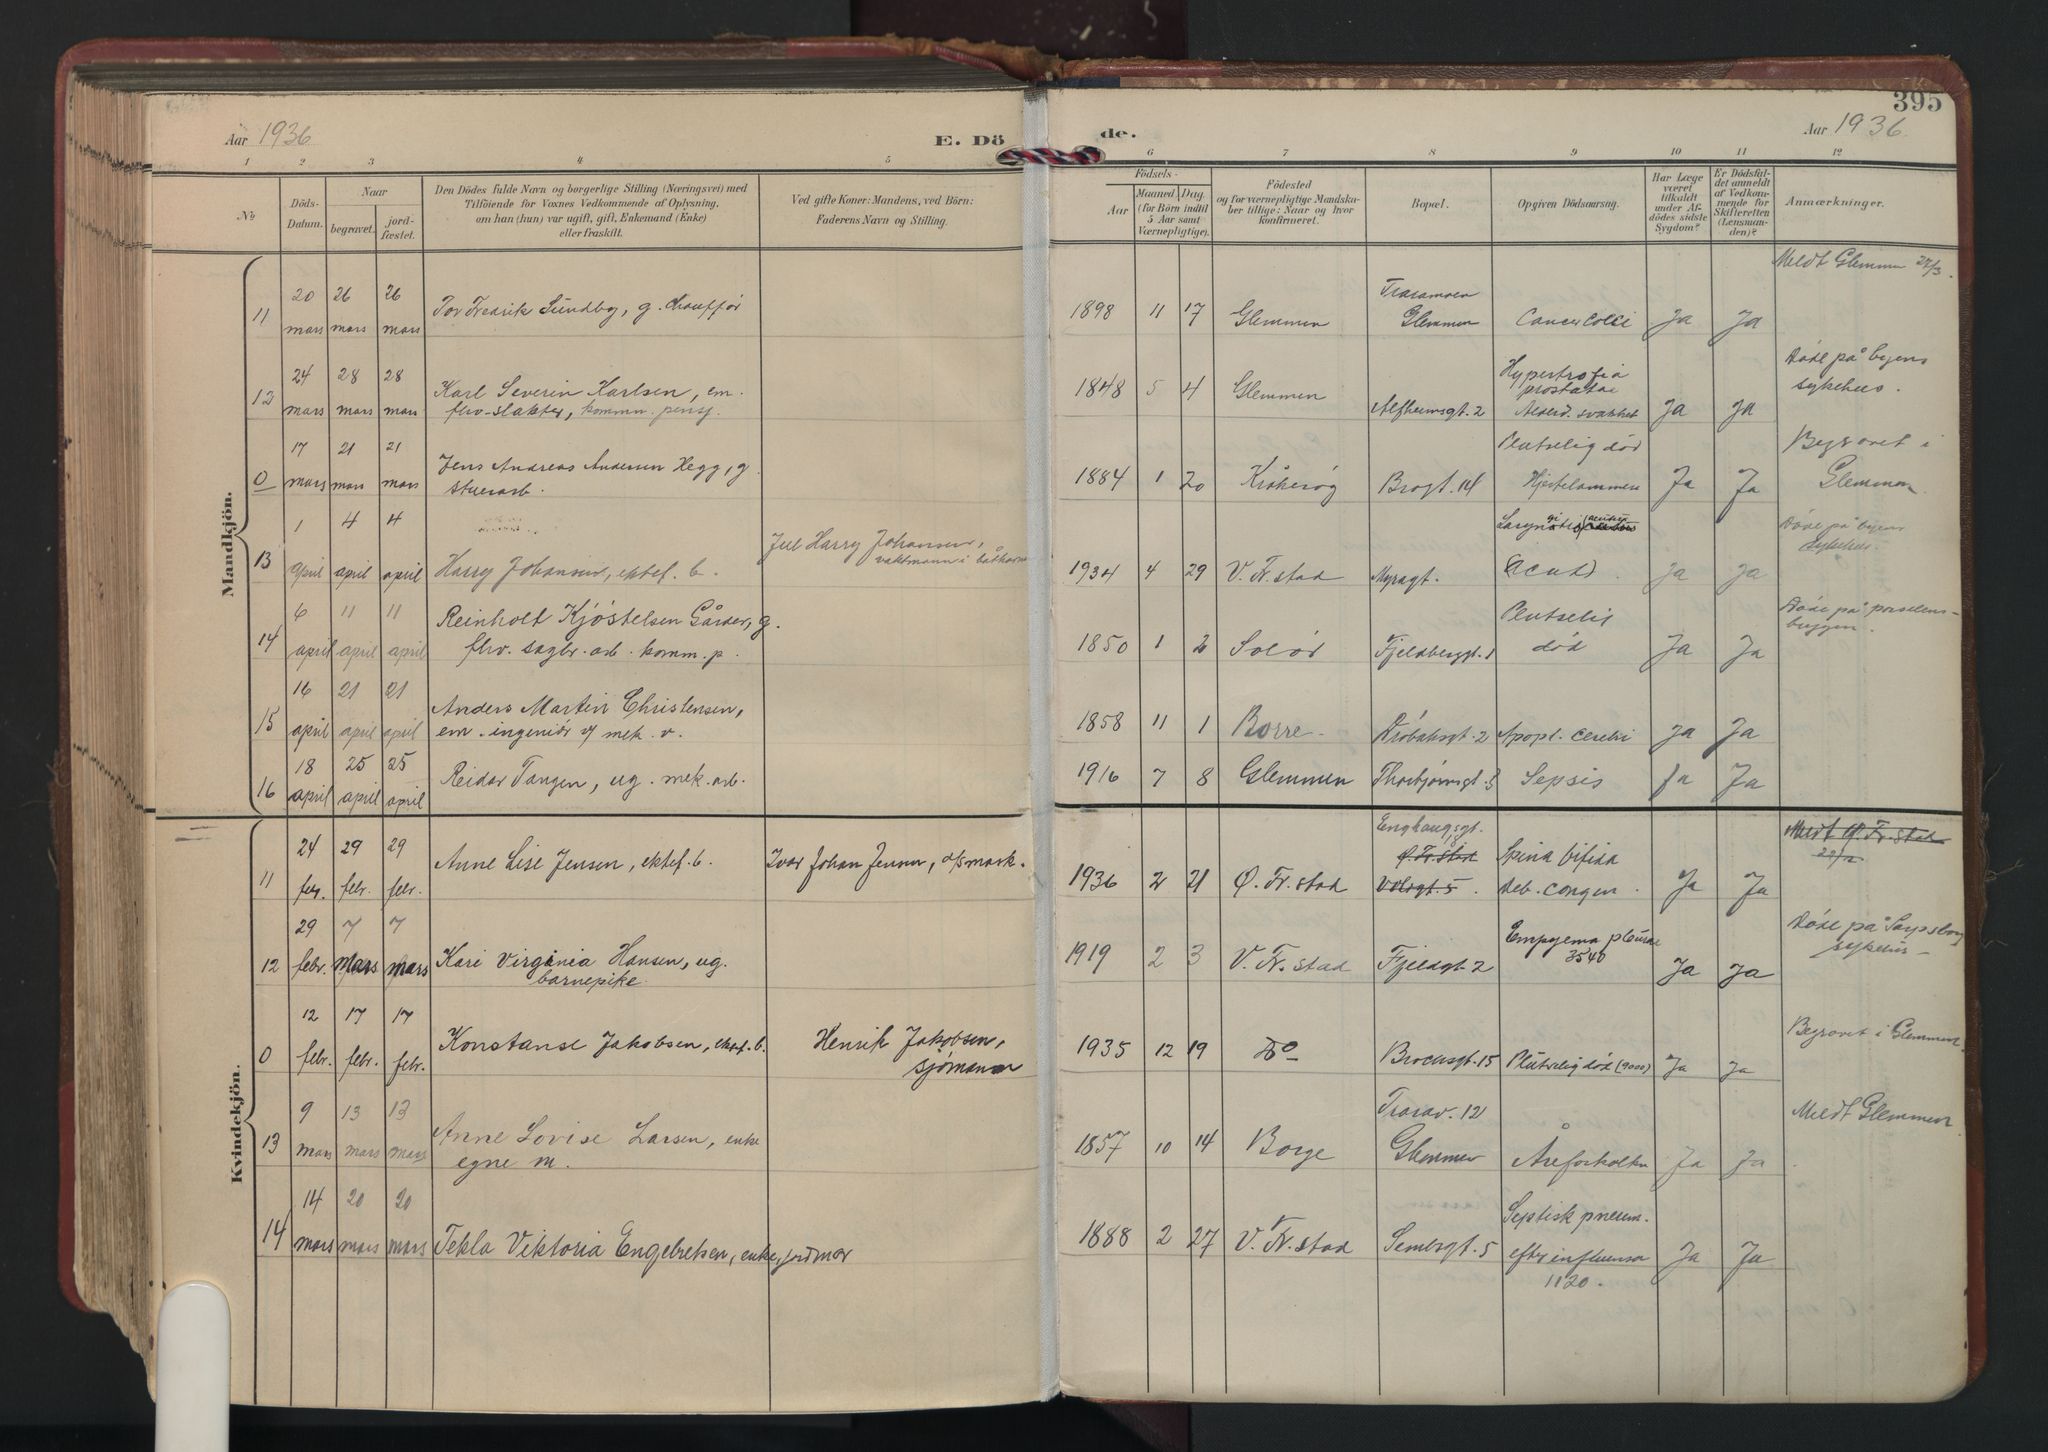 395
Aar 1936 E. Dö de. Aar 1936.
1 2 3 4 5 6 7 8 9 10 11 12
No
Döds-
Datum.
Naar
begravet.
jord-
fæstet.
Den Dödes fulde Navn og borgerlige Stilling (Næringsvei) med
Tilföiende for Voxnes Vedkommende af Oplysning,
om han (hun) var ugift, gift, Enkemand (Enke)
eller fraskilt.
Ved gifte Koner: Mandens, ved Börn:
Faderens Navn og Stilling.
Födsels-
Aar
Maaned Dag
(for Börn indtil
5 Aar samt
Værnepligtige).
Födested
og for værnepligtige Mandska-
ber tillige: Naar og hvor
konfirmeret.
Bopæl.
Opgiven Dödsaarsag.
Har Læge
været
tilkaldt
under Af-
dödes sidste
Sygdom?
Er Dödsfal-
det anmeldt
af Vedkom-
mende for
Skifteretten
(Lensman-
den)?
Anmærkninger.
Mandkjön.
Meldt Glemmen 27/3.
20 26 26
11 mars mars mars
Tor Fredrik Sundby, g. chauffør
1898 11 17 Glemmen
Traramoen
Glemmen
Cancer Coli Ja Ja
24 28 28
12 mars mars mars
Karl Severin Karlsen, em.
flrv. slakter, kommn. pensj.
1848 5 4 Glemmen Alfheimsgt. 2
Hypertrofia
prostatae
Alderd. svakhet Ja Ja
Døde på byens
sykehus.
17 21 21
0 mars mars mars
Jens Andreas Andersen Hegg, g.
stuerarb.
1884 1 20 Kråkerøy Brogt. 14
Plutselig død
Hjertelammen Ja Ja
Begravet i
Glemmen
1 4 4
13 april april april
Harry Johansen, ektef. b.
Jul Harry Johansen,
vaktmann i båthavn
1934 4 29 V. Fr. stad Myragt.
(acut) Ja Ja
Døde på byens
sykehus.
6 11 11
14 april april april
Reinholt Kjøstelsen Gårder, g.
flrv. sagbr. arb. komm. p.
1850 1 2 Solør Fjeldberggt. 1
Plutselig
død Ja Ja
Døde på porselens-
byggen.
16 21 21
15 april april april
Anders Martin Christensen,
em. ingeniør v/ mek. v.
1858 11 1 Borre Dröbaksgt. 2 Apopl. cerebri Ja Ja
18 25 25
16 april april april
Reidar Tangen, ug. mek. arb.
1916 7 8 Glemmen Thorbjørnsgt. 3 Sepsis Ja Ja
Kvindekjön.
24 29 29
11 febr. febr. febr.
Anne Lise Jensen, ektef. b. Ivar Johan Jensen,
1936 2 21 Ø. Fr. stad
Enghaugsgt.
18
Ø. Fr. stad
Volsgt. 5.
Spina bifida
Deb. congen. Ja Ja
Meldt Ø. Fr. stad
29/2
29 7 7
12 febr. mars mars
Kari Virginia Hansen, ug.
barnepike.
1919 2 3 V. Fr. stad Fjeldgt. 2
Empyema pleurae
3540 Ja Ja
Døde på Sarpsborg
sykehus
12 17 17
0 febr. febr. febr.
Konstanse Jakobsen, ektef. b.
Henrik Jakobsen,
sjømann
1935 12 19 Do Brochsgt. 15 Plutselig død (9000) Ja Ja
Begravet i Glemmen.
9 13 13
13 mars mars mars
Anne Lovise Larsen, enke
egne m.
1857 10 14 Borge
Trarav. 12
Glemmen
Åreforkalkn Ja Ja
Meldt Glemmen.
14 20 20
14 mars mars mars
Tekla Viktoria Engebretsen, enke, jordmor
1888 2 27 V. Fr. stad Sembsgt. 5
Septisk pneum.
efter influensa
1120. Ja Ja